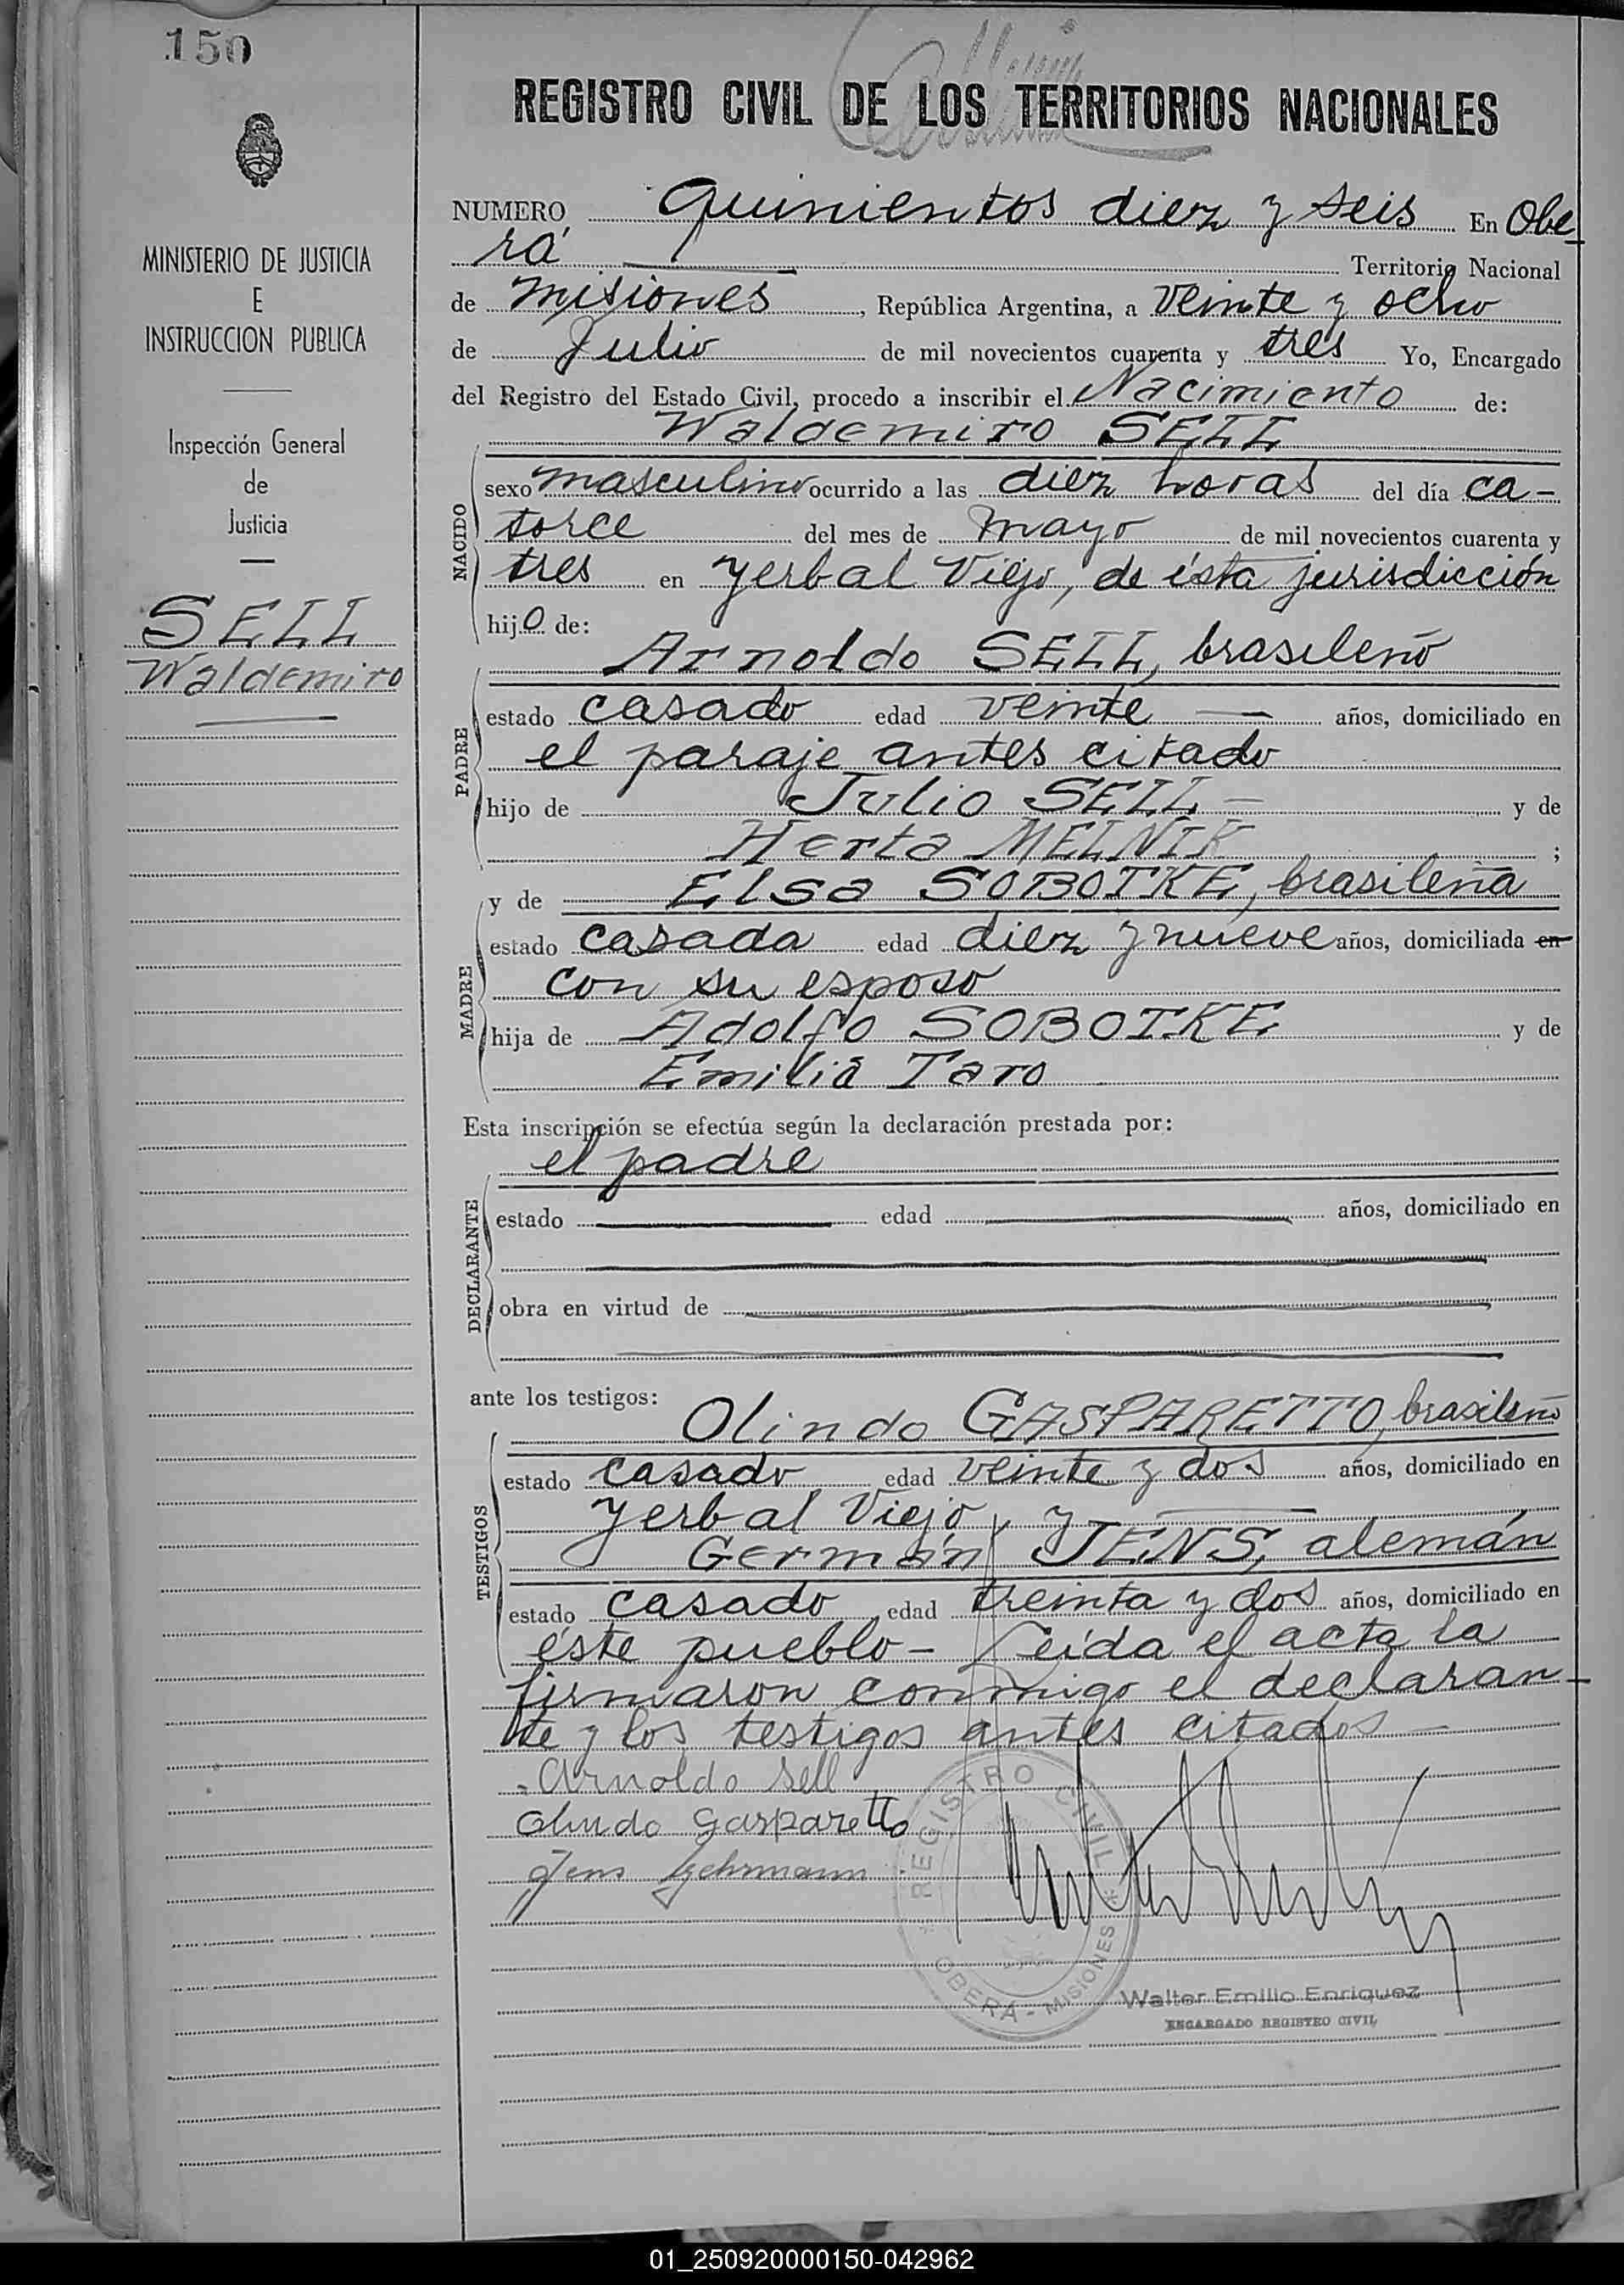 150
MINISTERIO DE JUSTICIA
E
INSTRUCCION PUBLICA
Inspección General
de
Justicia
SELL
Waldemiro
REGISTRO CIVIL DE LOS TERRITORIOS NACIONALES
NUMERO quinientos diez y seis En Obe-
rá Territorio Nacional
de Misiones, República Argentina, a veinte y ocho
de Julio de mil novecientos cuarenta y tres Yo, Encargado
del Registro del Estado Civil, procedo a inscribir el Nacimiento de:
Waldemiro SELL
NACIDO
sexo masculino ocurrido a las diez horas del día ca-
torce del mes de mayo de mil novecientos cuarenta y
tres en Yerbal Viejo, de ésta jurisdicción
hijo de:
Arnoldo SELL, brasileño
PADRE
estado casado edad veinte — años, domiciliado en
el paraje antes citado
hijo de Julio SELL — y de
Herta MELNIK ;
y de Elsa SOBOTKE, brasileña
MADRE
estado casada edad diez y nueve años, domiciliada en
con su esposo
hija de Adolfo SOBOTKE y de
Emilia Taro
Esta inscripción se efectúa según la declaración prestada por:
el padre
DECLARANTE
estado edad años, domiciliado en
obra en virtud de
ante los testigos:
Olindo GASPARETTO, brasileño
TESTIGOS
estado casado edad veinte y dos años, domiciliado en
Yerbal Viejo, y
Germán JENS, alemán
estado casado edad treinta y dos años, domiciliado en
éste pueblo — Leída el acta la
firmaron conmigo el declaran-
te y los testigos antes citados —
Arnoldo Sell
Olindo Gasparetto
Jens Gehrmann
REGISTRO CIVIL
OBERA - MISIONES
Walter Emilio Enriquez
ENCARGADO REGISTRO CIVIL
01_250920000150-042962